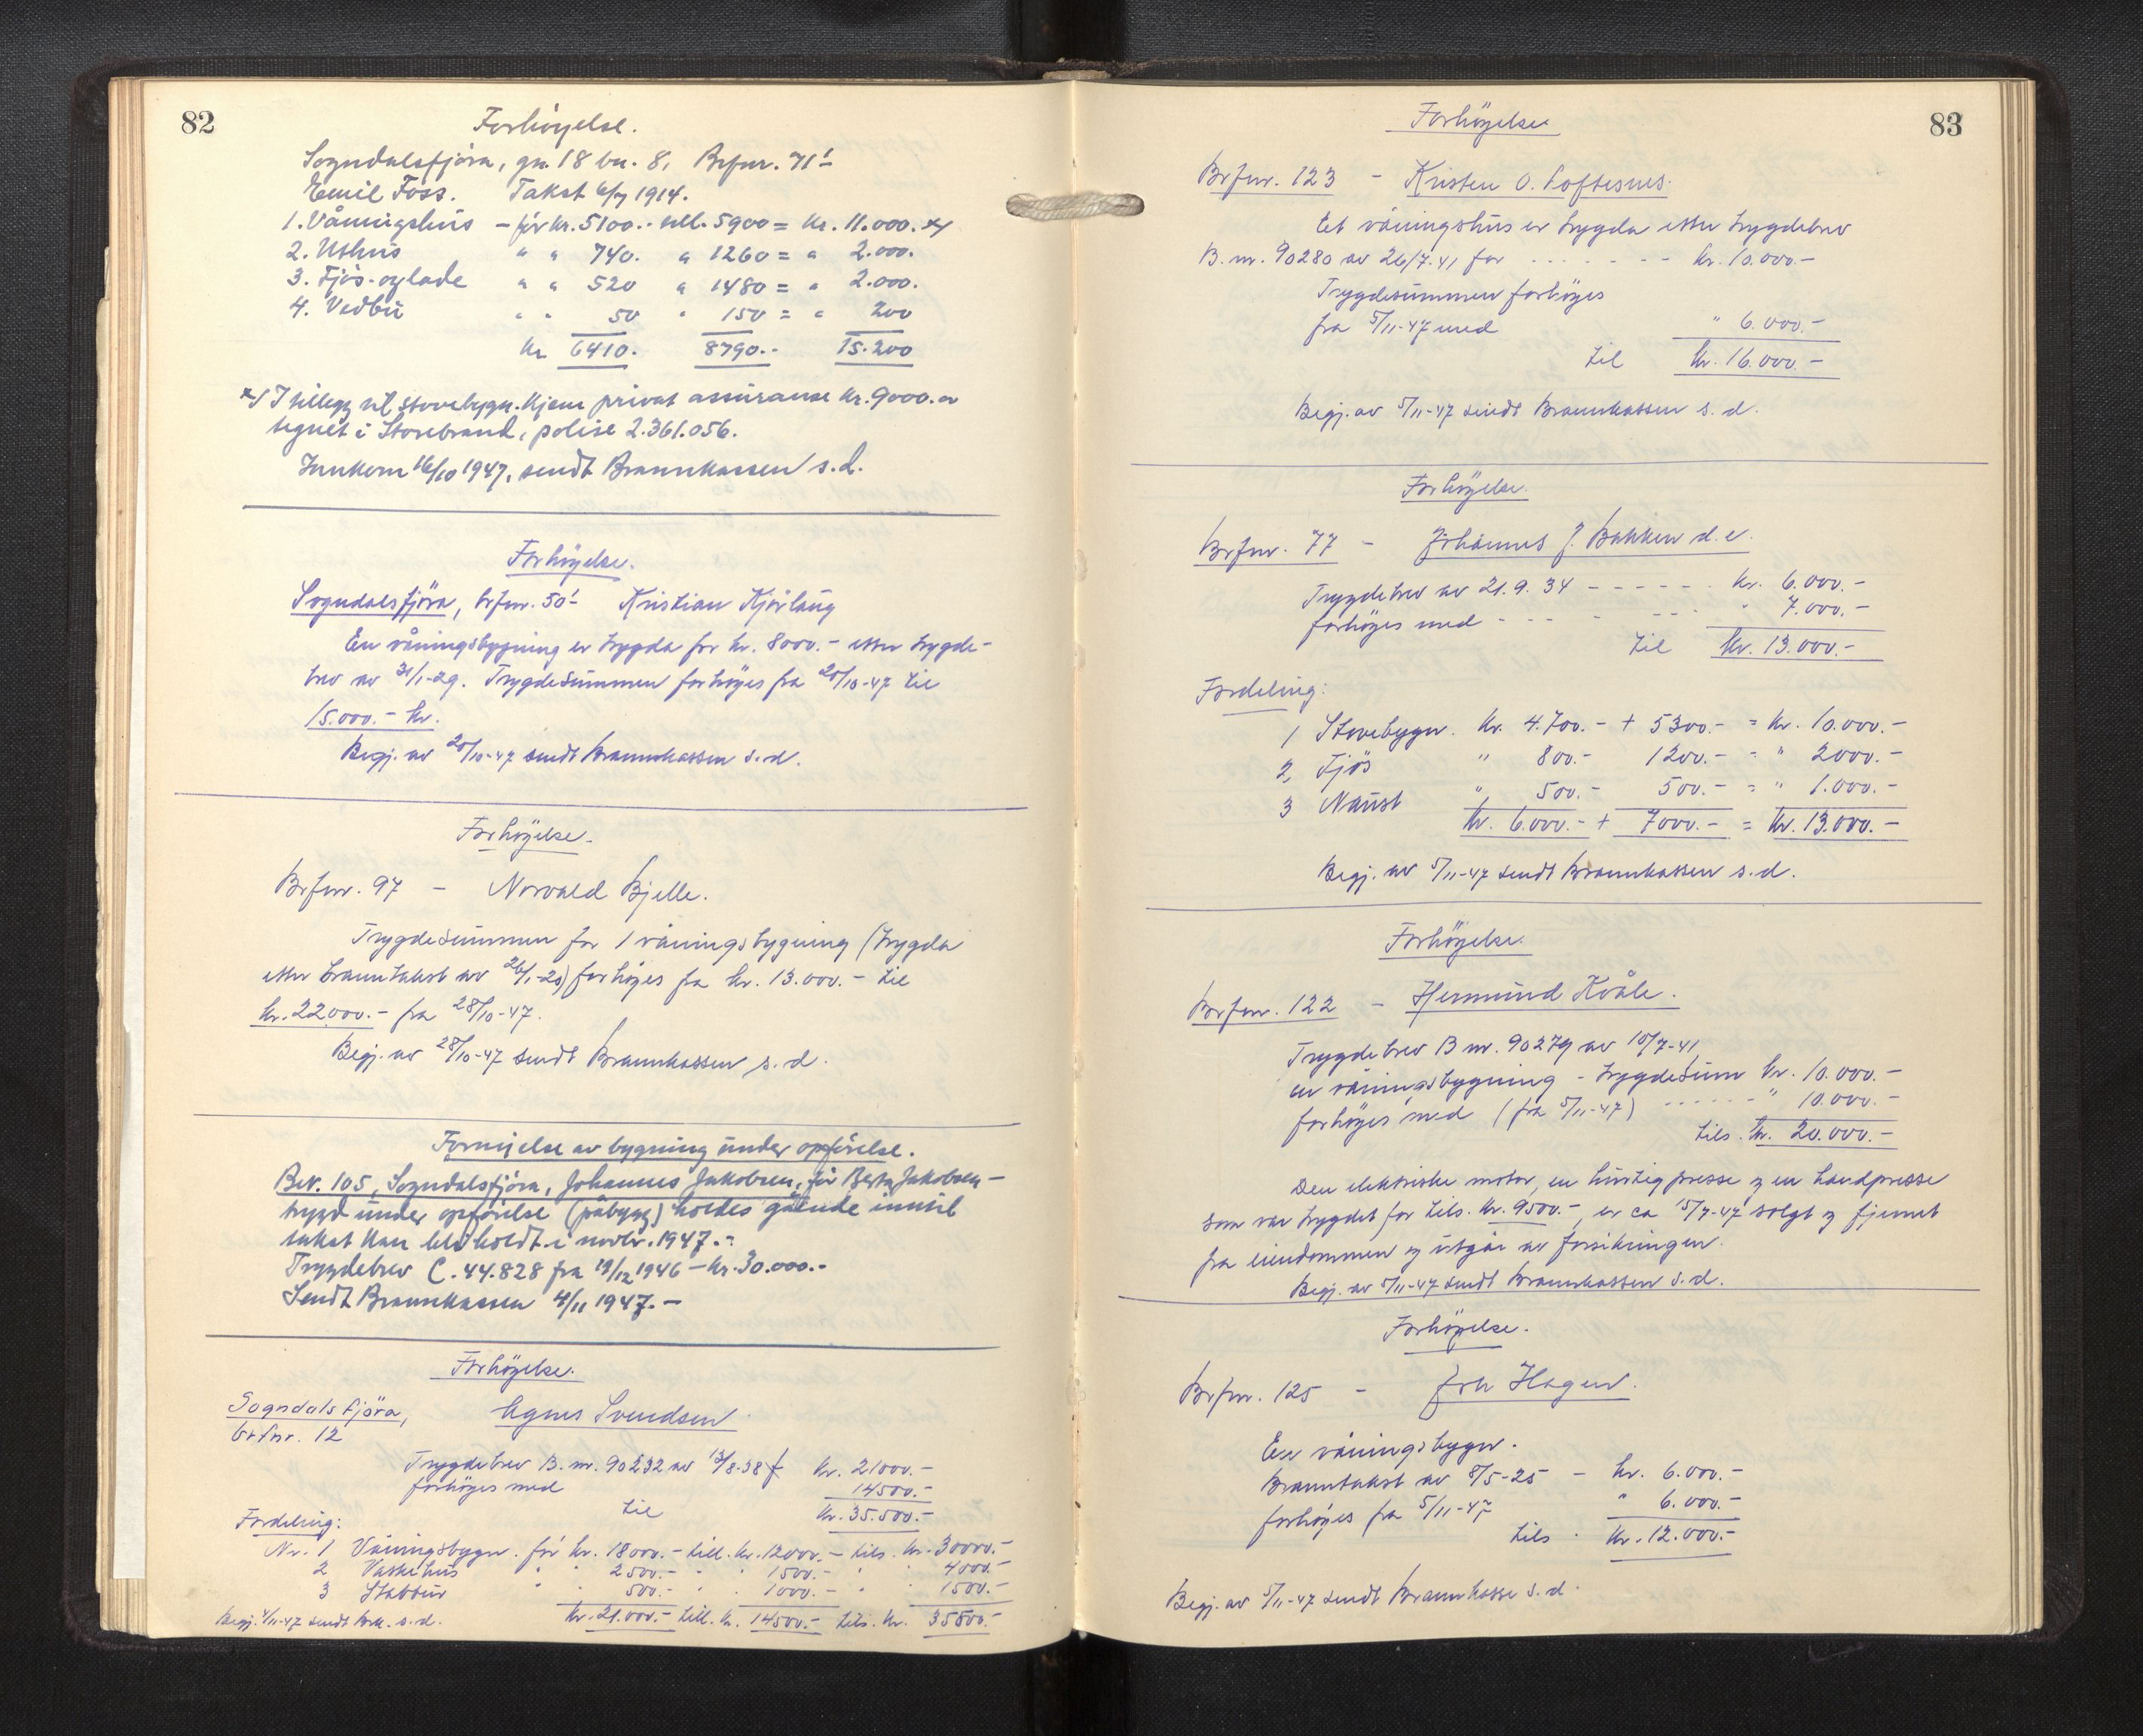 82
Forhöyelse.
Sogndalsfjøra, gn. 18 bn. 8, Brfnr. 71!
Emil Foss. Takst 6/7 1914.
1. Våningshus – før kr. 5100.- till. 5900 = kr. 11.000. x)
2. Uthus " " 740. " 1260 = " 2.000.
3. Fjøs- og lade " " 520 " 1480 = " 2.000.
4. Vedbu " " 50 " 150 = " 200
Kr 6410. 8790.- 15.200
x) I tillegg til stovebygn. kjem privat assuranse kr. 9000.-
tegnet i Storebrand, polise 2.361.056.
Innkom 16/10 1947, sendt Brannkassen s.d.
Forhöyelse.
Sogndalsfjöra, brfnr. 50! Kristian Kjörlaug
En våningsbygning er trygda for kr. 8000.- etter trygde-
brev av 31/1-29. Trygdesummen forhöyes fra 20/10-47 til
15.000.- kr.
Begj. av 20/10-47 sendt Brannkassen s.d.
Forhöyelse.
Brfnr. 97 – Norvald Bjelle.
Trygdesummen for 1 våningsbygning (trygda
etter branntakst av 26/1-25) forhöyes fra kr. 13.000.- til
kr. 22000.- fra 28/10-47.
Begj. av 28/10-47 sendt Brannkassen s.d.
Fornyelse av bygning under opførelse.
Bnr. 105, Sogndalsfjöra, Johannes Jakobsen, før Berta Jakobsen –
trygd under opførelse (påbygg) holdes gående inntil
takst kan bli holdt i novbr. 1947.-
Trygdebrev C. 44.828 fra 19/12 1946 – kr. 30.000.-
Sendt Brannkassen 4/11 1947.-
Forhöyelse.
Sogndalsfjøra, Agnes Svendsen
brfnr. 12
Trygdebrev B. nr. 90232 av 13/8-38 f kr. 21000.-
forhöyes med 14500.-
til kr. 35.500.-
Fordeling:
Nr. 1 Våningsbygn. för kr. 18000.- till. kr. 12000.- tils. kr. 30000.-
2 Vaskehus " " 2500.- " " 1500.- " " 4000.-
3 Stabbur " " 500.- " " 1000.- " " 1500.-
kr. 21.000.- till. kr. 14500.- tils. kr. 35500.-
Begj. 4/11-47 sendt Brk. s.d.
83
Forhöyelse
Brfnr. 123 – Kristen O. Loftesnes.
Et våningshus er trygda etter trygdebrev
B. nr. 90280 av 26/7.41 for - - - - - - - kr. 10.000.-
Trygdesummen forhöyes
fra 5/11-47 med " 6.000.-
til kr. 16.000.-
Begj. av 5/11-47 sendt Brannkassen s.d.
Forhöyelse.
Brfnr. 77 – Johannes J. Bakken d.e.
Trygdebrev av 21.9.34 - - - - - - kr. 6.000.-
forhöyes med - - - - - - - " 7.000.-
til kr. 13.000.-
Fordeling:
1 Stovebygn. kr. 4.700.- + 5300.- = kr. 10.000.-
2, Fjös " 800.- 1200.- = " 2000.-
3 Naust " 500.- 500.- = " 1.000.-
kr. 6.000.- + 7000.- = kr. 13.000.-
Begj. av 5/11-47 sendt Brannkassen s.d.
Forhöyelse.
Brfnr. 122 – Hermund Kvåle.
Trygdebrev B nr. 90279 av 10/7-41,
en våningsbygning - trygdesum kr. 10.000.-
forhöyes med (fra 5/11-47) - - - - - - " 10.000.-
tils. kr. 20.000.-
Den elektriske motor, en hurtigpresse og en handpresse
som var trygdet for tils. kr. 9500.-, er ca 15/7-47 solgt og fjernet
fra eiendommen og utgår av forsikringen.
Begj. av 5/11-47 sendt Brannkassen s.d.
Forhöyelse.
Brfnr. 125 – Hagen.
En våningsbygn.
Branntakst av 8/5-25 – kr. 6.000.-
forhöyes fra 5/11-47 " 6.000.-
tils. kr. 12.000.-
Begj. av 5/11-47 sendt Brannkasse s.d.